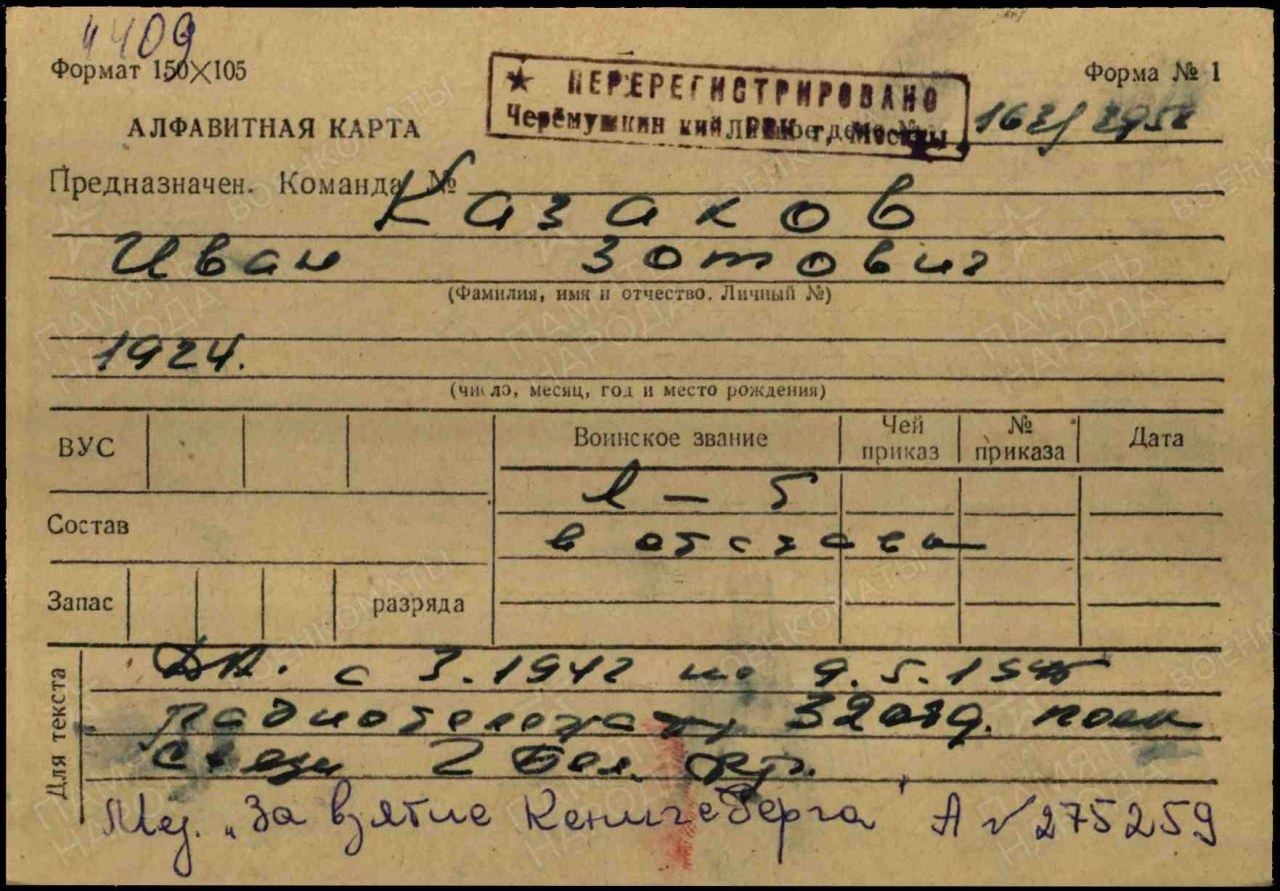 4409
Формат 150×105
★ ПЕРЕРЕГИСТРИРОВАНО
Форма № 1
Черёмушкин кий РВК г. Москвы
АЛФАВИТНАЯ КАРТА
Предназначен. Команда №
Казаков
Иван Зотович
(Фамилия, имя и отчество. Личный №)
1924.
(число, месяц, год и место рождения)
ВУС
Воинское звание
Чей приказ
№ приказа
Дата
л-т
в отставке
Состав
Запас
разряда
Для текста
ДА. с 3.1942 по 9.5.1945
Радиотелегра 32 отд. полк
связи 2 Бел. фр.
Мед. „За взятие Кенигсберга" А № 275259